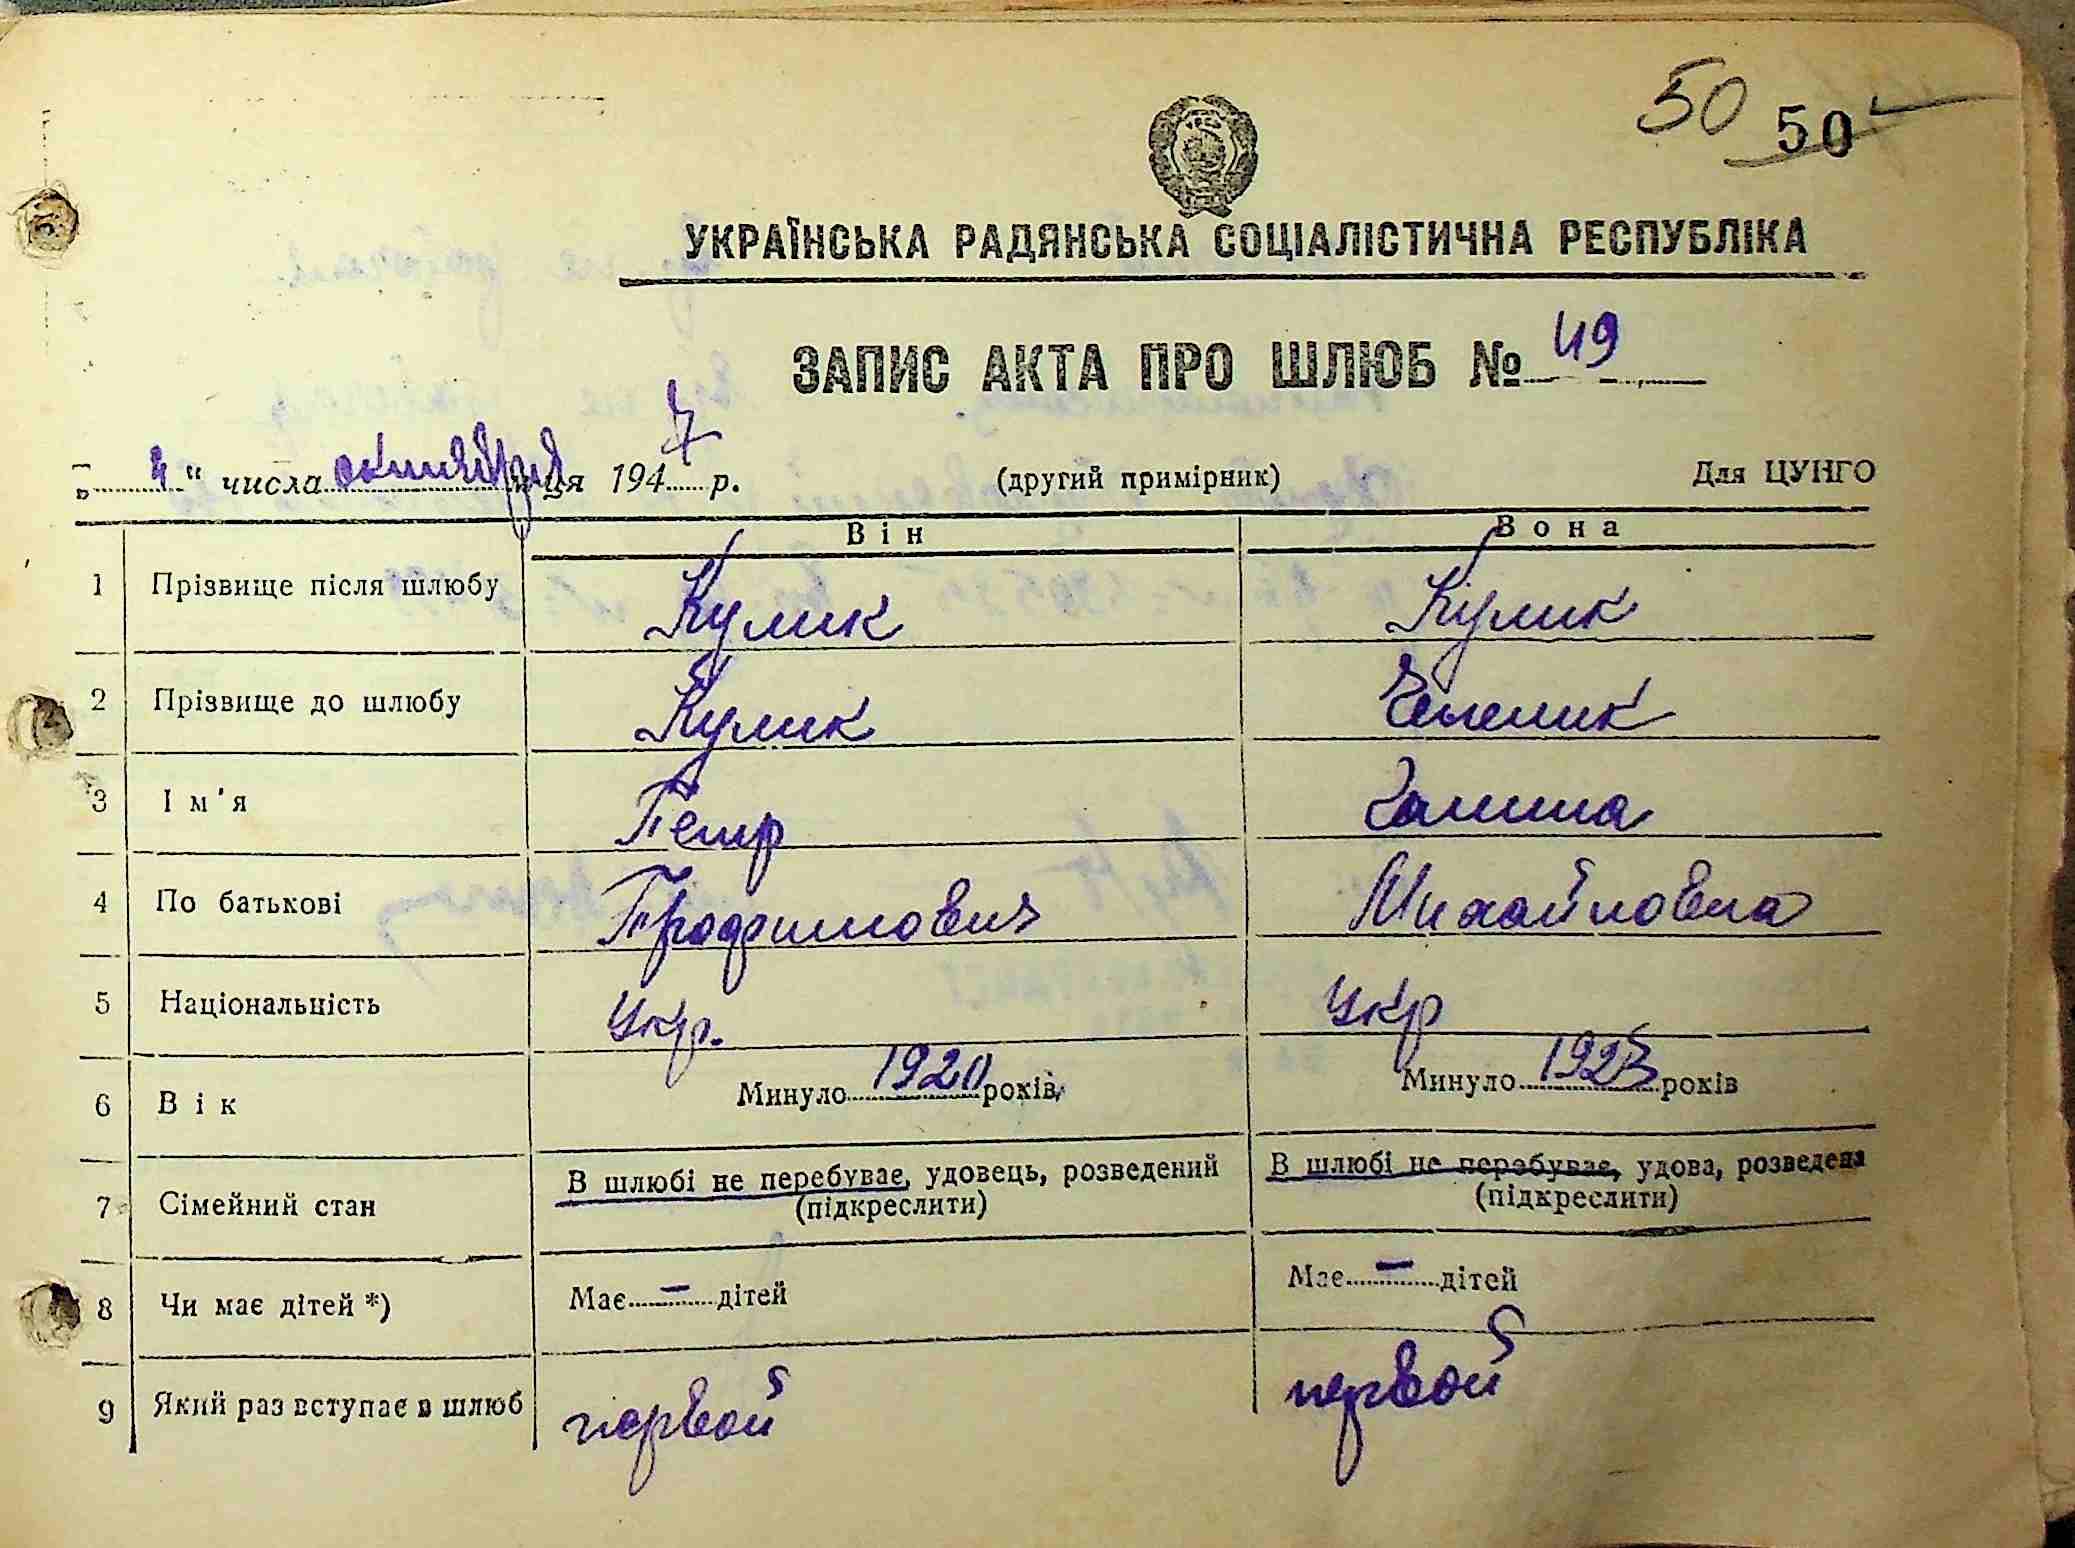 50 50
УКРАЇНСЬКА РАДЯНСЬКА СОЦІАЛІСТИЧНА РЕСПУБЛІКА
ЗАПИС АКТА ПРО ШЛЮБ № 49
„ 4 " числа октября ця 1947 р. (другий примірник) Для ЦУНГО
Він Вона
1 Прізвище після шлюбу Кулик Кулик
2 Прізвище до шлюбу Кулик
3 Ім'я Петр Галина
4 По батькові Михайловна
5 Національність Укр. Укр
6 Вік Минуло 1920 років, Минуло 1923 років
7 Сімейний стан В шлюбі не перебуває, удовець, розведений В шлюбі не перебуває, удова, розведена
(підкреслити) (підкреслити)
8 Чи має дітей *) Має — дітей Має — дітей
9 Який раз вступає в шлюб первой первой